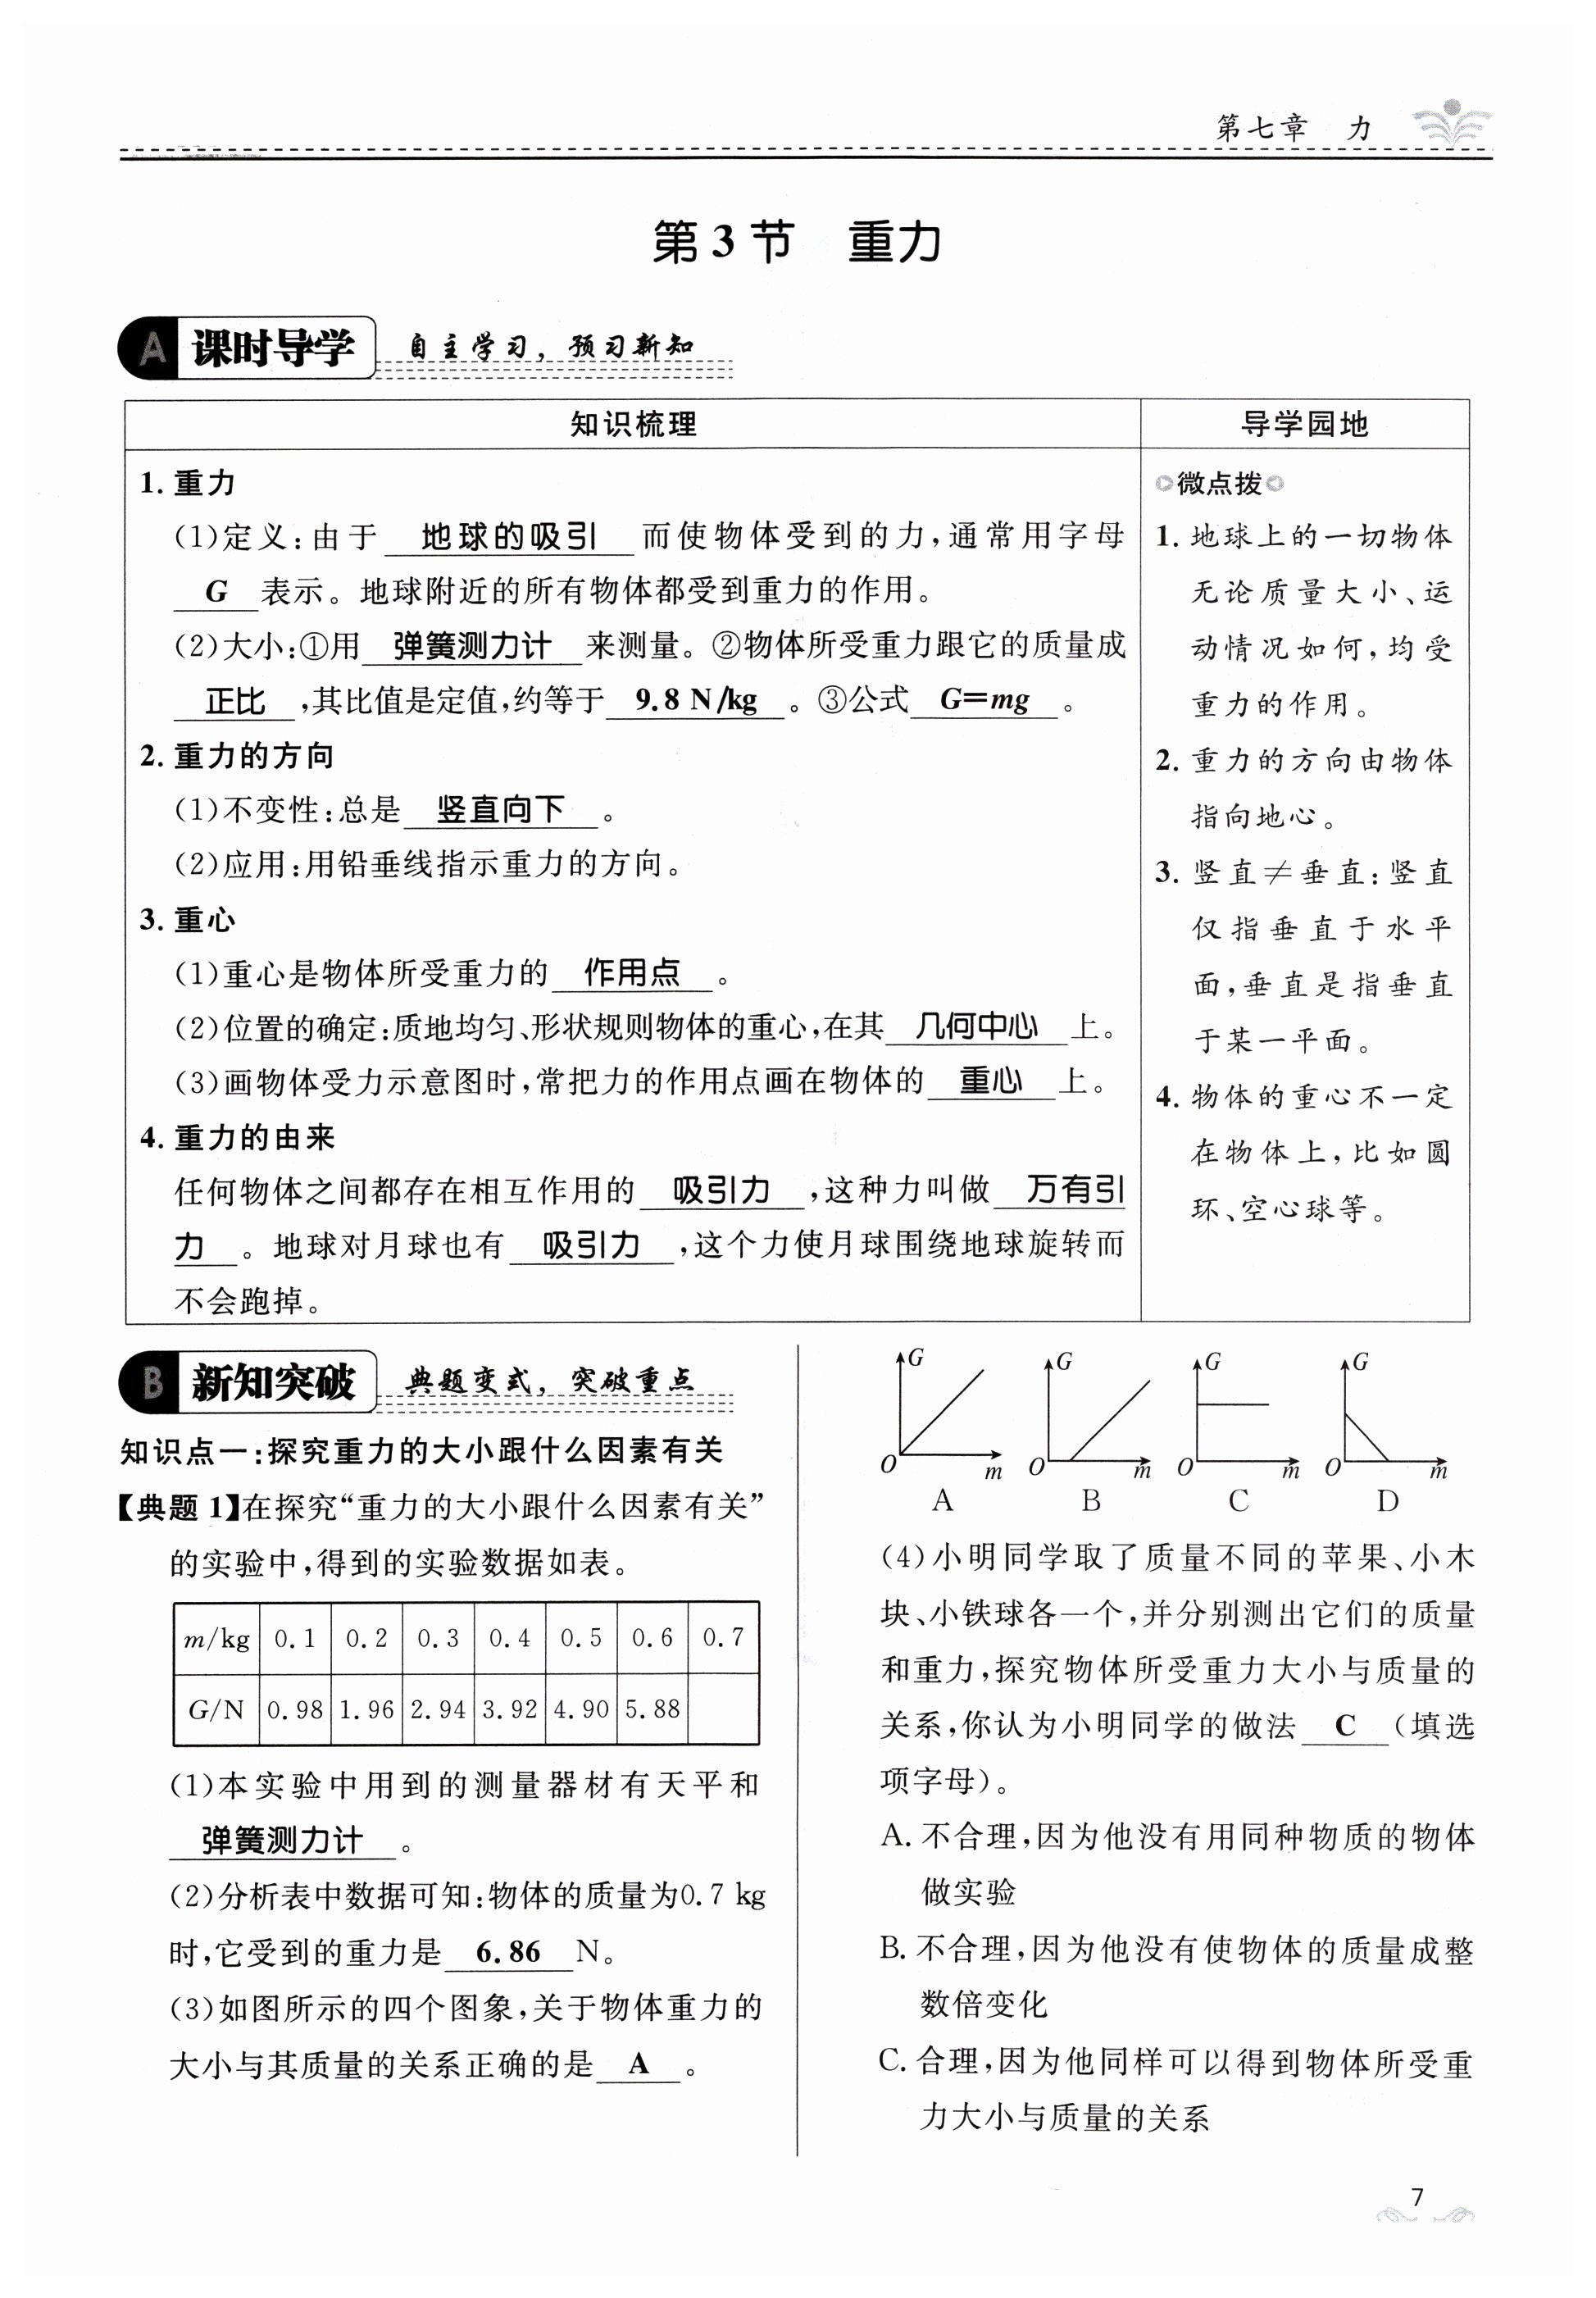 第七章 力
第3节 重力
A 课时导学 自主学习，预习新知
知识梳理
1. 重力
(1)定义:由于 地球的吸引 而使物体受到的力,通常用字母
G 表示。地球附近的所有物体都受到重力的作用。
(2)大小:①用 弹簧测力计 来测量。②物体所受重力跟它的质量成
正比 ,其比值是定值,约等于 9.8 N/kg 。③公式 G=mg 。
2. 重力的方向
(1)不变性:总是 竖直向下 。
(2)应用:用铅垂线指示重力的方向。
3. 重心
(1)重心是物体所受重力的 作用点 。
(2)位置的确定:质地均匀、形状规则物体的重心,在其 几何中心 上。
(3)画物体受力示意图时,常把力的作用点画在物体的 重心 上。
4. 重力的由来
任何物体之间都存在相互作用的 吸引力 ,这种力叫做 万有引
力 。地球对月球也有 吸引力 ,这个力使月球围绕地球旋转而
不会跑掉。
导学园地
微点拨
1. 地球上的一切物体
无论质量大小、运
动情况如何,均受
重力的作用。
2. 重力的方向由物体
指向地心。
3. 竖直≠垂直:竖直
仅指垂直于水平
面,垂直是指垂直
于某一平面。
4. 物体的重心不一定
在物体上,比如圆
环、空心球等。
B 新知突破 典题变式，突破重点
知识点一:探究重力的大小跟什么因素有关
【典题1】在探究“重力的大小跟什么因素有关”
的实验中,得到的实验数据如表。
m/kg 0.1 0.2 0.3 0.4 0.5 0.6 0.7
G/N 0.98 1.96 2.94 3.92 4.90 5.88
(1)本实验中用到的测量器材有天平和
弹簧测力计 。
(2)分析表中数据可知:物体的质量为0.7 kg
时,它受到的重力是 6.86 N。
(3)如图所示的四个图象,关于物体重力的
大小与其质量的关系正确的是 A 。
G G G G
O m O m O m O m
A B C D
(4)小明同学取了质量不同的苹果、小木
块、小铁球各一个,并分别测出它们的质量
和重力,探究物体所受重力大小与质量的
关系,你认为小明同学的做法 C (填选
项字母)。
A. 不合理,因为他没有用同种物质的物体
做实验
B. 不合理,因为他没有使物体的质量成整
数倍变化
C. 合理,因为他同样可以得到物体所受重
力大小与质量的关系
7